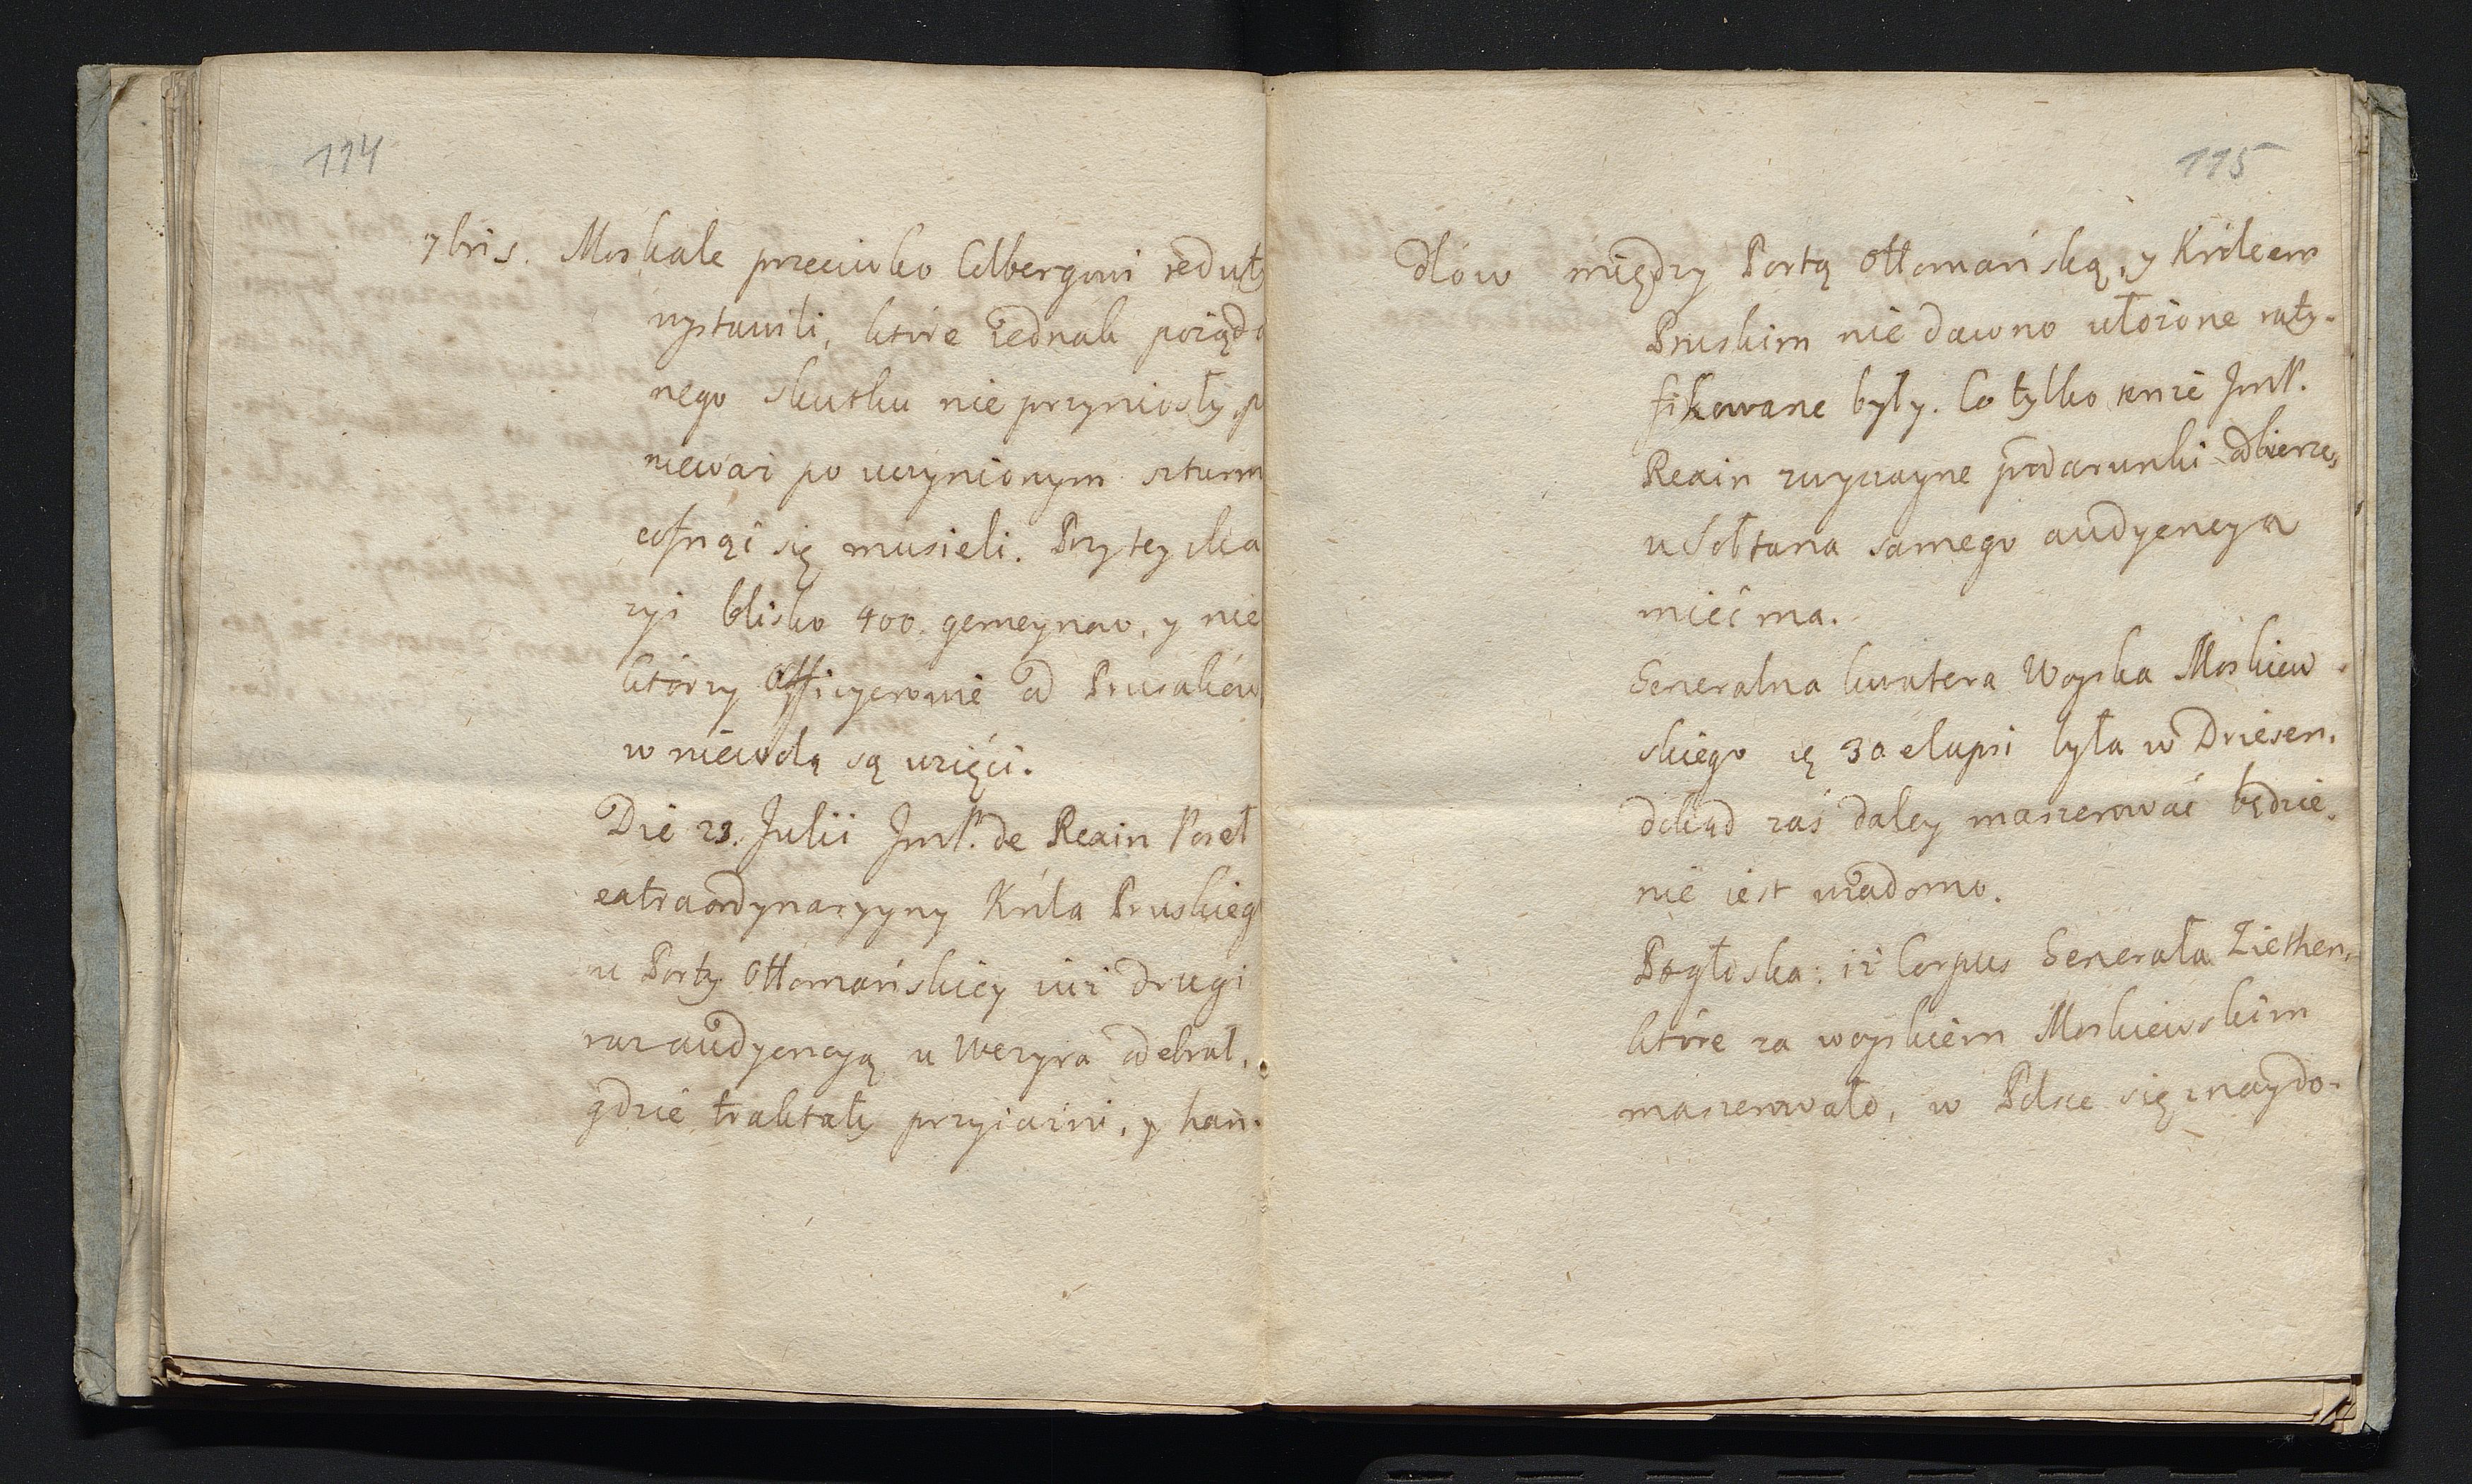 114
7bris. Moskale przeciwko Colbergowi reduty
wystawili, które iednak porząda
nego skutku nie przyniosły p
niewaz po uczynionym szturm
cofnąć się musieli. Przy tey oka
zyi blisko 400. gemeynow, y nie
którzy Officyerowie od Prusaków
w niewolą są wzięci.
Die 23. Julii JmP. de Rexin Poseł
extraordynaryyny Króla Pruskieg
u Porty Ottomańskiey iuz drugi
raz audyencyą u Wezyra odebrał,
gdzie traktaty przyiazni, y han-
115
dlow między Portą Ottomańską, y Królem
Pruskim nie dawno ułożone raty-
fikowane były. Co tylko tenze JmP.
Rexin zwyczayne podarunki odbierze,
u Sołtana samego audyencya
mieć ma.
Generalna kwatera Woyska Moskiew-
skiego ię 30 elapsi była w Driesen,
dokąd zaś daley maszerować będzie,
nie iest wiadomo.
Pogłoska: iż Corpus Generała Ziethen,
które za woyskiem Moskiewskim
maszerowało, w Polsce się znaydo-